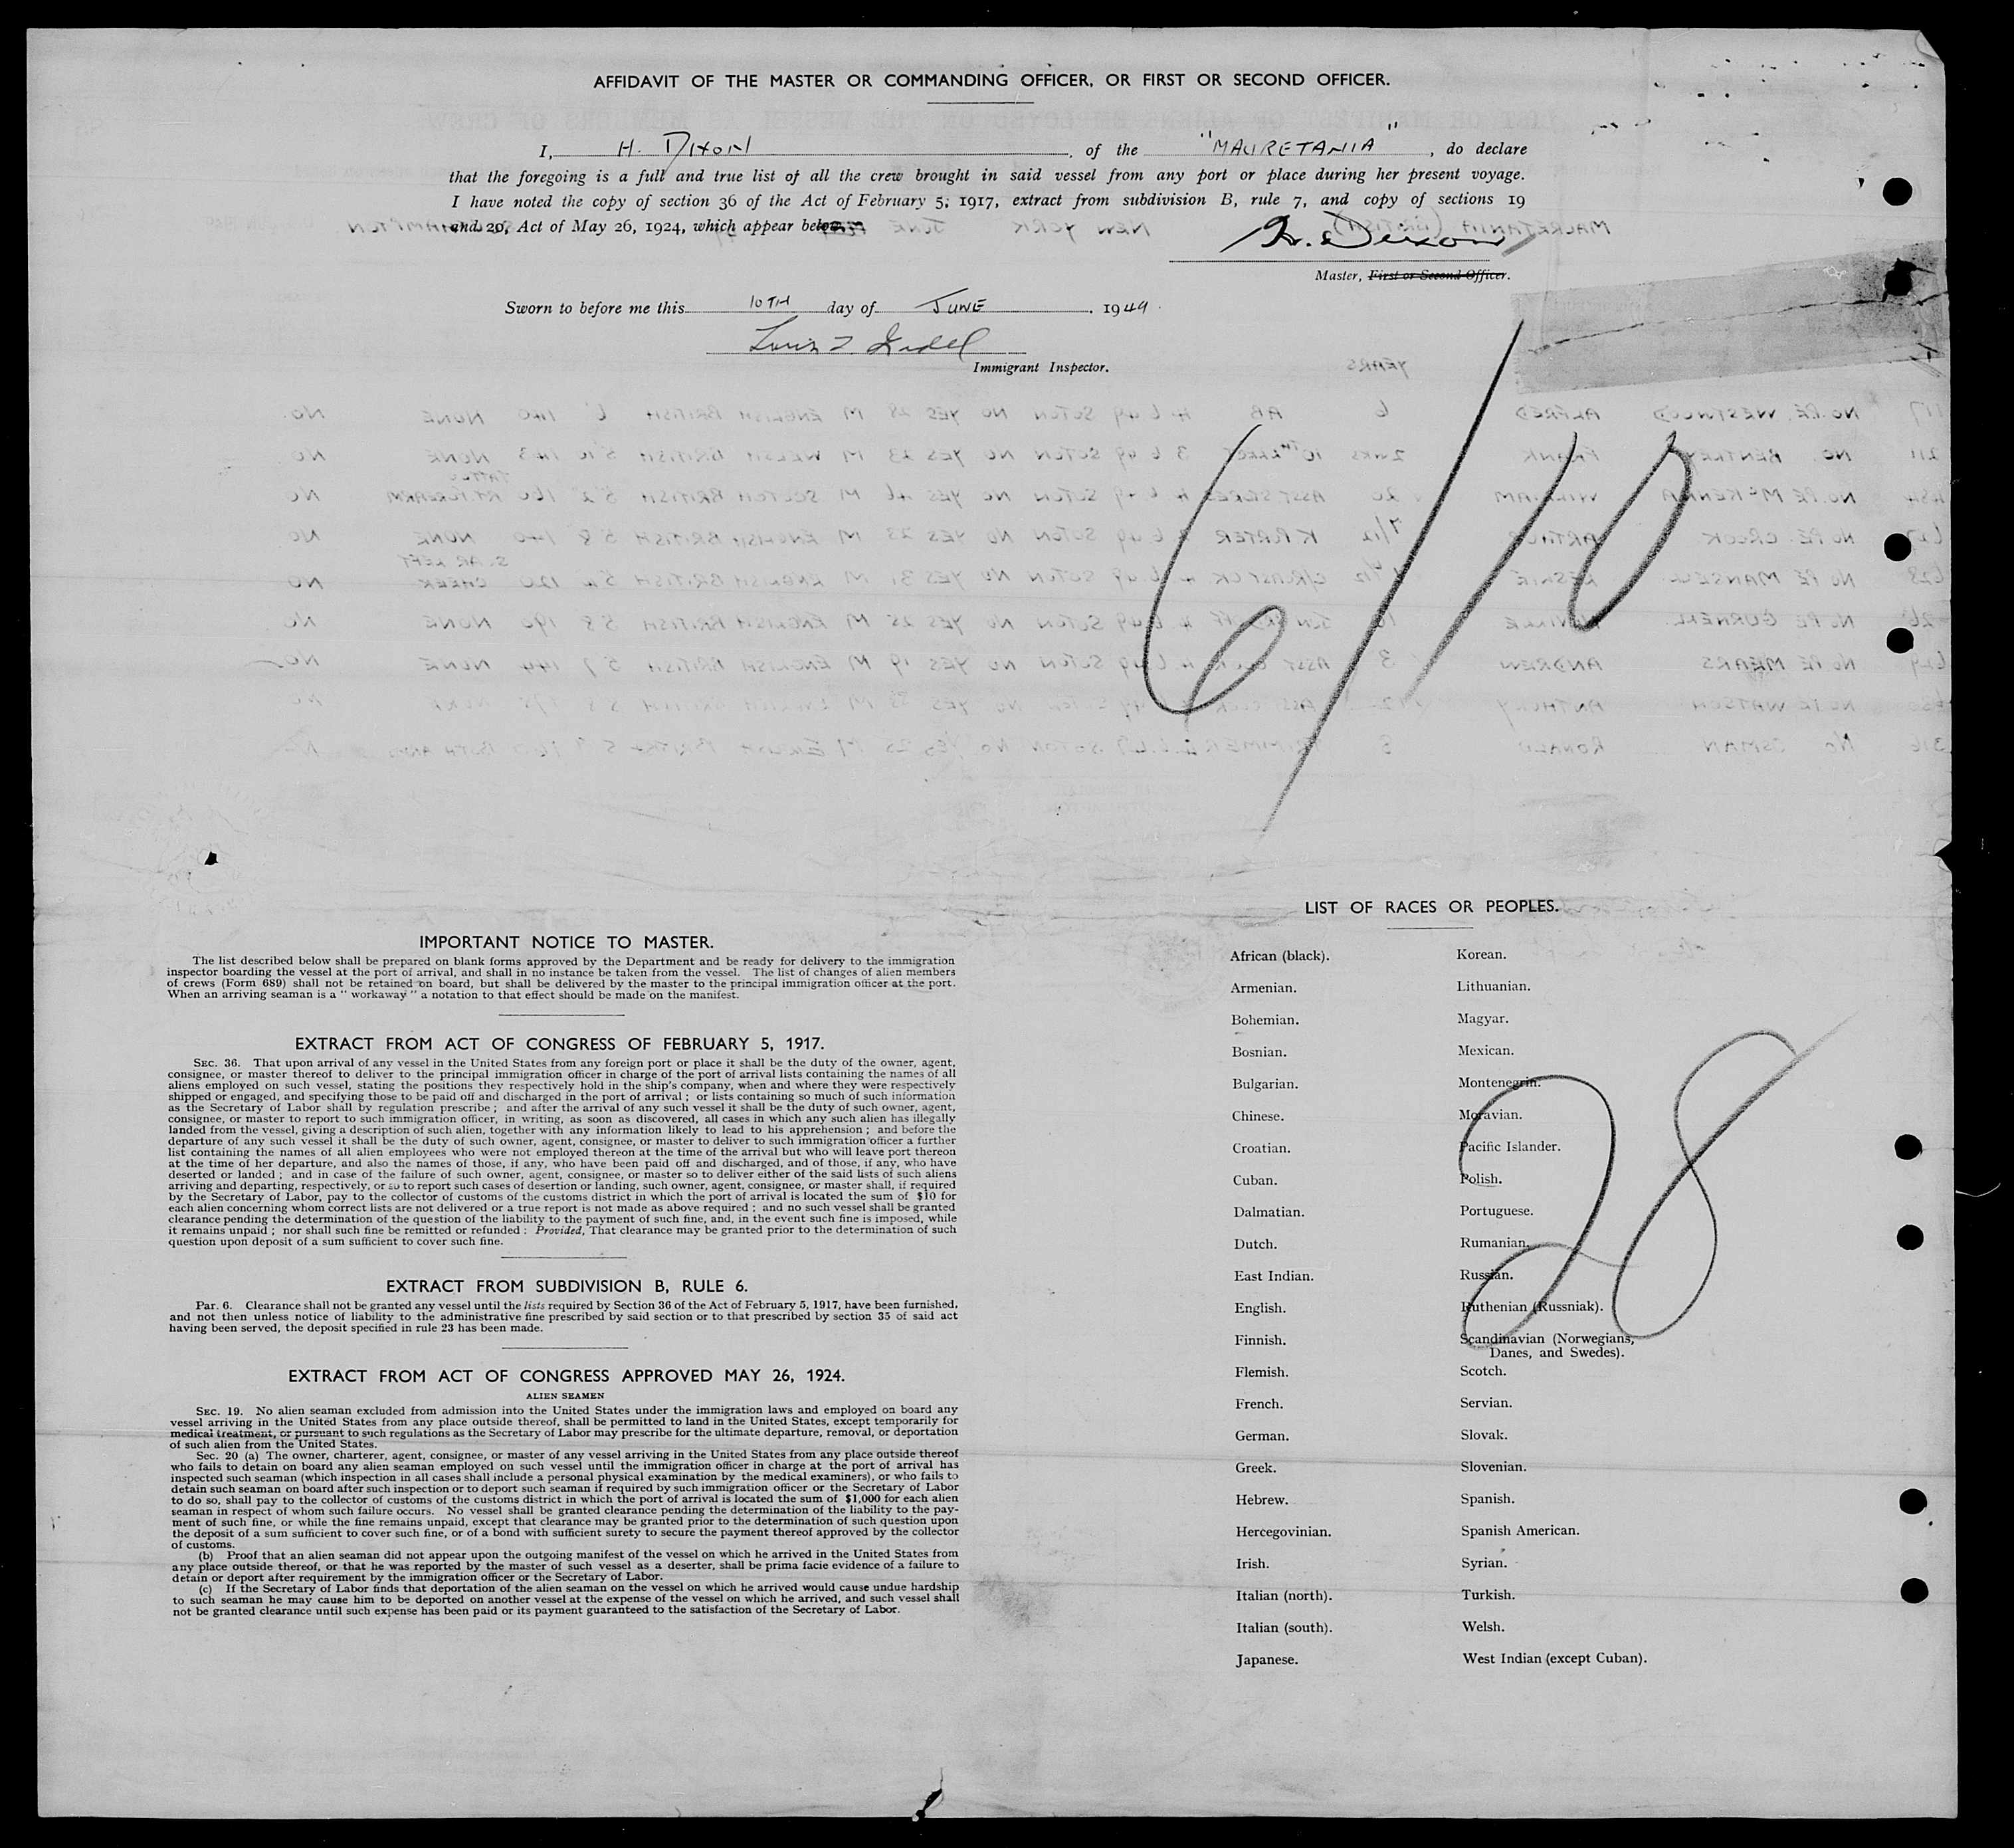 AFFIDAVIT OF THE MASTER OR COMMANDING OFFICER, OR FIRST OR SECOND OFFICER.
I, H. DIXON, of the "MAURETANIA", do declare
that the foregoing is a full and true list of all the crew brought in said vessel from any port or place during her present voyage.
I have noted the copy of section 36 of the Act of February 5, 1917, extract from subdivision B, rule 7, and copy of sections 19
and 20, Act of May 26, 1924, which appear below.
H. Dixon
Master, First or Second Officer.
Sworn to before me this 10TH day of JUNE, 1949.
Immigrant Inspector.
6/10
IMPORTANT NOTICE TO MASTER.
The list described below shall be prepared on blank forms approved by the Department and be ready for delivery to the immigration
inspector boarding the vessel at the port of arrival, and shall in no instance be taken from the vessel. The list of changes of alien members
of crews (Form 689) shall not be retained on board, but shall be delivered by the master to the principal immigration officer at the port.
When an arriving seaman is a " workaway " a notation to that effect should be made on the manifest.
EXTRACT FROM ACT OF CONGRESS OF FEBRUARY 5, 1917.
SEC. 36. That upon arrival of any vessel in the United States from any foreign port or place it shall be the duty of the owner, agent,
consignee, or master thereof to deliver to the principal immigration officer in charge of the port of arrival lists containing the names of all
aliens employed on such vessel, stating the positions they respectively hold in the ship's company, when and where they were respectively
shipped or engaged, and specifying those to be paid off and discharged in the port of arrival ; or lists containing so much of such information
as the Secretary of Labor shall by regulation prescribe ; and after the arrival of any such vessel it shall be the duty of such owner, agent,
consignee, or master to report to such immigration officer, in writing, as soon as discovered, all cases in which any such alien has illegally
landed from the vessel, giving a description of such alien, together with any information likely to lead to his apprehension ; and before the
departure of any such vessel it shall be the duty of such owner, agent, consignee, or master to deliver to such immigration officer a further
list containing the names of all alien employees who were not employed thereon at the time of the arrival but who will leave port thereon
at the time of her departure, and also the names of those, if any, who have been paid off and discharged, and of those, if any, who have
deserted or landed ; and in case of the failure of such owner, agent, consignee, or master so to deliver either of the said lists of such aliens
arriving and departing, respectively, or so to report such cases of desertion or landing, such owner, agent, consignee, or master shall, if required
by the Secretary of Labor, pay to the collector of customs of the customs district in which the port of arrival is located the sum of $10 for
each alien concerning whom correct lists are not delivered or a true report is not made as above required ; and no such vessel shall be granted
clearance pending the determination of the question of the liability to the payment of such fine, and, in the event such fine is imposed, while
it remains unpaid ; nor shall such fine be remitted or refunded : Provided, That clearance may be granted prior to the determination of such
question upon deposit of a sum sufficient to cover such fine.
EXTRACT FROM SUBDIVISION B, RULE 6.
Par. 6. Clearance shall not be granted any vessel until the lists required by Section 36 of the Act of February 5, 1917, have been furnished,
and not then unless notice of liability to the administrative fine prescribed by said section or to that prescribed by section 35 of said act
having been served, the deposit specified in rule 23 has been made.
EXTRACT FROM ACT OF CONGRESS APPROVED MAY 26, 1924.
ALIEN SEAMEN
SEC. 19. No alien seaman excluded from admission into the United States under the immigration laws and employed on board any
vessel arriving in the United States from any place outside thereof, shall be permitted to land in the United States, except temporarily for
medical treatment, or pursuant to such regulations as the Secretary of Labor may prescribe for the ultimate departure, removal, or deportation
of such alien from the United States.
Sec. 20 (a) The owner, charterer, agent, consignee, or master of any vessel arriving in the United States from any place outside thereof
who fails to detain on board any alien seaman employed on such vessel until the immigration officer in charge at the port of arrival has
inspected such seaman (which inspection in all cases shall include a personal physical examination by the medical examiners), or who fails to
detain such seaman on board after such inspection or to deport such seaman if required by such immigration officer or the Secretary of Labor
to do so, shall pay to the collector of customs of the customs district in which the port of arrival is located the sum of $1,000 for each alien
seaman in respect of whom such failure occurs. No vessel shall be granted clearance pending the determination of the liability to the pay-
ment of such fine, or while the fine remains unpaid, except that clearance may be granted prior to the determination of such question upon
the deposit of a sum sufficient to cover such fine, or of a bond with sufficient surety to secure the payment thereof approved by the collector
of customs.
(b) Proof that an alien seaman did not appear upon the outgoing manifest of the vessel on which he arrived in the United States from
any place outside thereof, or that he was reported by the master of such vessel as a deserter, shall be prima facie evidence of a failure to
detain or deport after requirement by the immigration officer or the Secretary of Labor.
(c) If the Secretary of Labor finds that deportation of the alien seaman on the vessel on which he arrived would cause undue hardship
to such seaman he may cause him to be deported on another vessel at the expense of the vessel on which he arrived, and such vessel shall
not be granted clearance until such expense has been paid or its payment guaranteed to the satisfaction of the Secretary of Labor.
LIST OF RACES OR PEOPLES.
African (black).
Armenian.
Bohemian.
Bosnian.
Bulgarian.
Chinese.
Croatian.
Cuban.
Dalmatian.
Dutch.
East Indian.
English.
Finnish.
Flemish.
French.
German.
Greek.
Hebrew.
Hercegovinian.
Irish.
Italian (north).
Italian (south).
Japanese.
Korean.
Lithuanian.
Magyar.
Mexican.
Montenegrin.
Moravian.
Pacific Islander.
Polish.
Portuguese.
Rumanian.
Russian.
Ruthenian (Russniak).
Scandinavian (Norwegians,
Danes, and Swedes).
Scotch.
Servian.
Slovak.
Slovenian.
Spanish.
Spanish American.
Syrian.
Turkish.
Welsh.
West Indian (except Cuban).
28